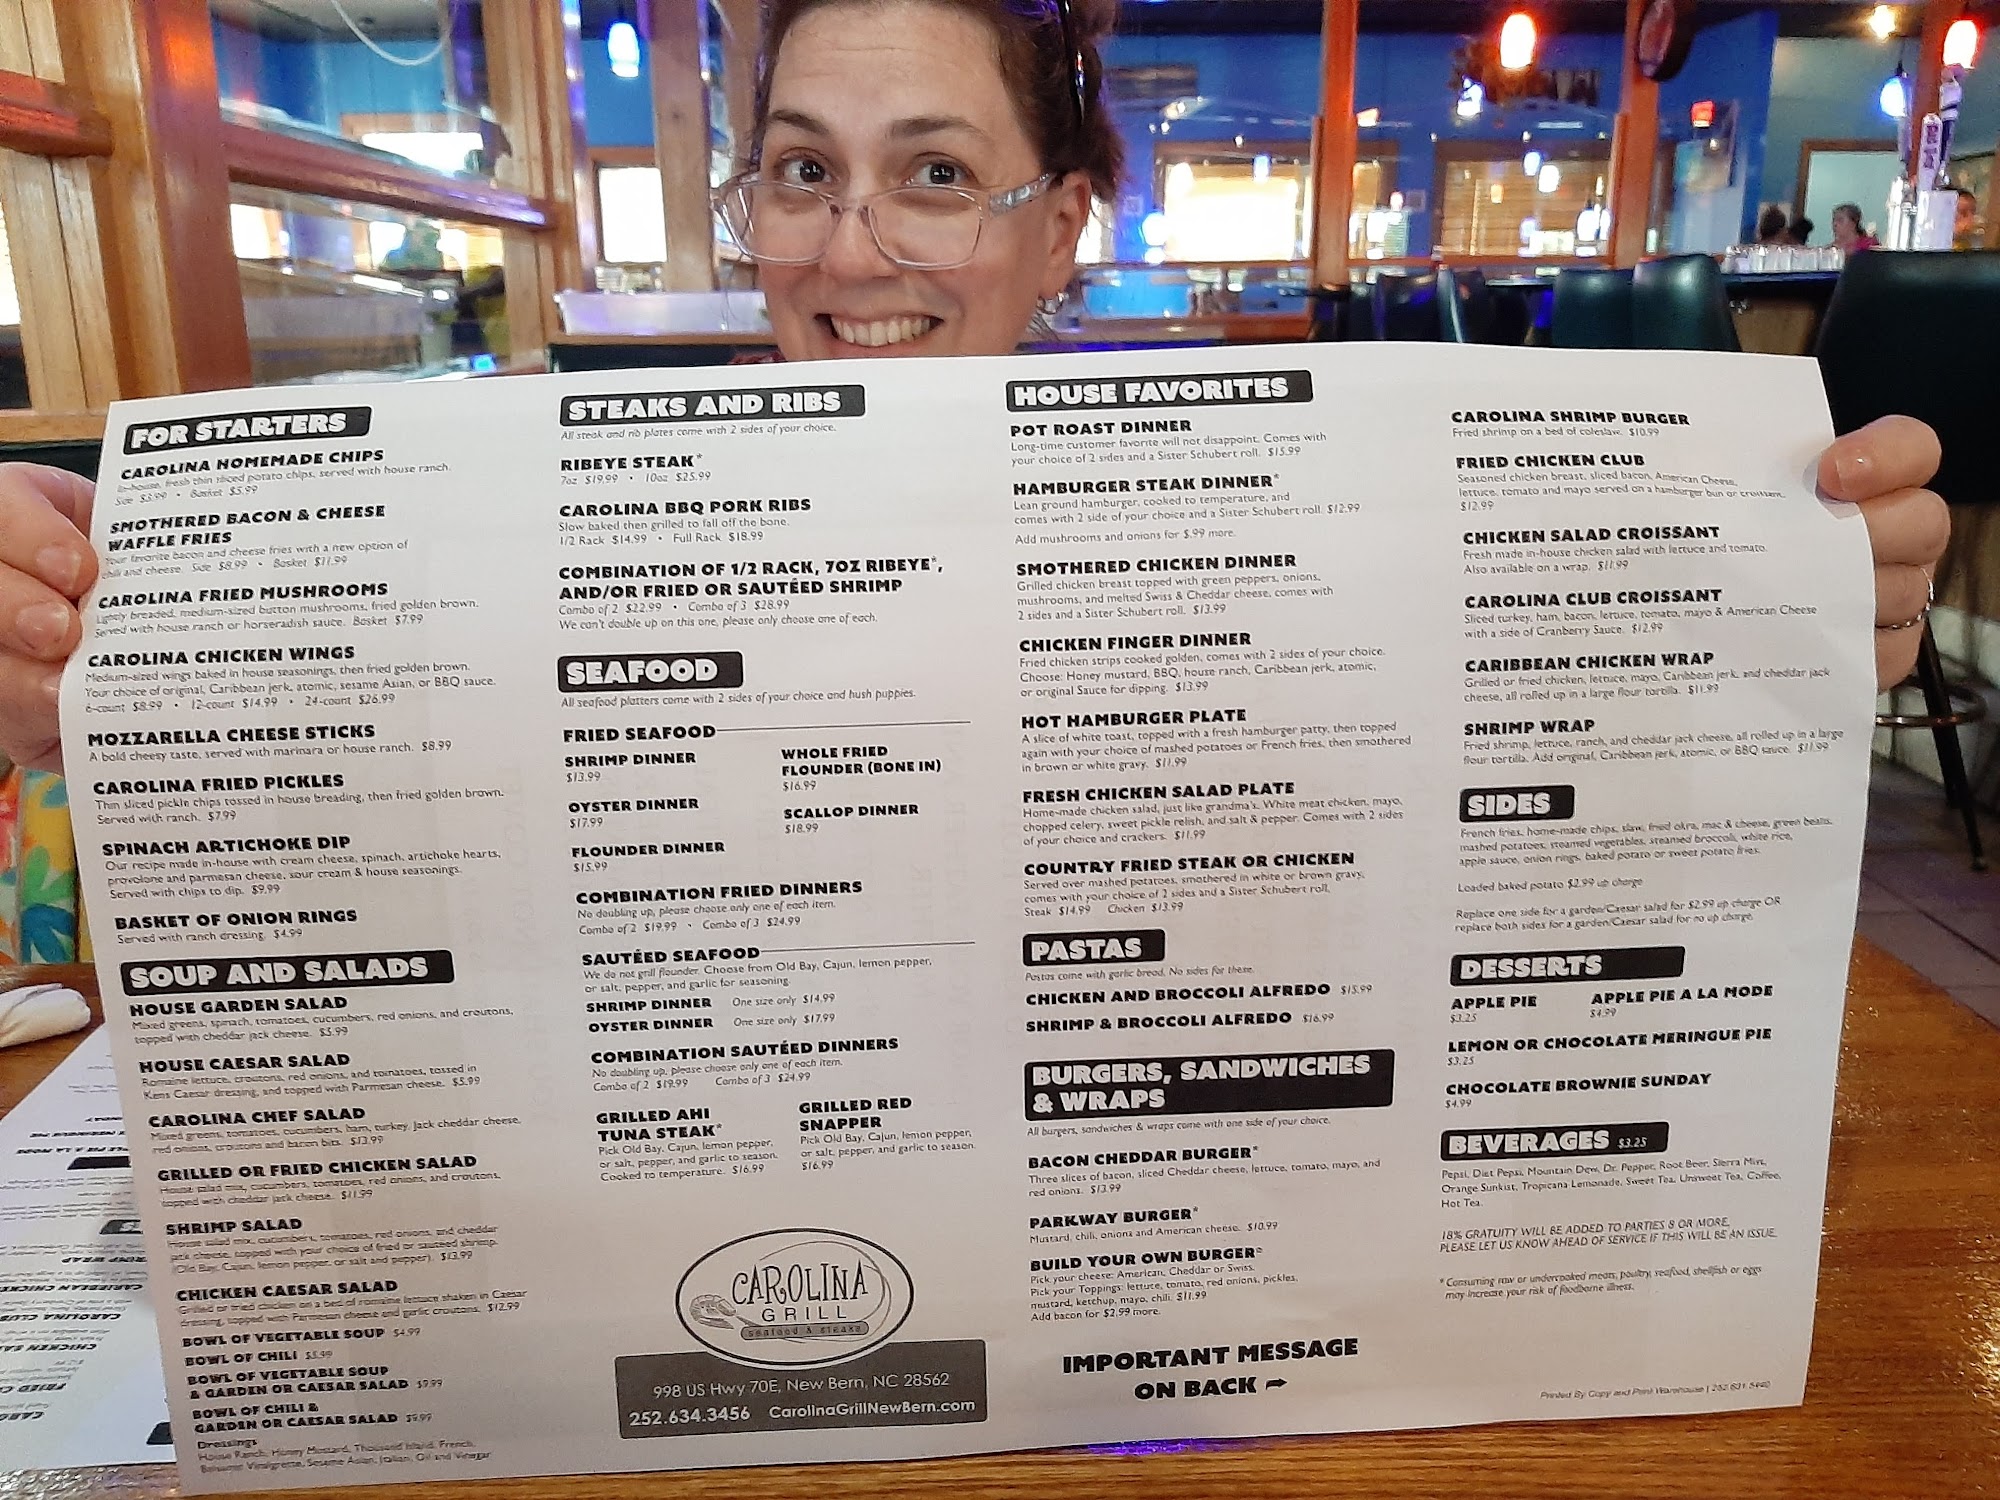 FOR STARTERS
CAROLINA HOMEMADE CHIPS
In-house, fresh thin sliced potato chips, served with house ranch.
Side $3.99 • Basket $5.99
SMOTHERED BACON & CHEESE
WAFFLE FRIES
Your favorite bacon and cheese fries with a new option of
chili and cheese. Side $8.99 • Basket $11.99
CAROLINA FRIED MUSHROOMS
Lightly breaded, medium-sized button mushrooms, fried golden brown.
Served with house ranch or horseradish sauce. Basket $7.99
CAROLINA CHICKEN WINGS
Medium-sized wings baked in house seasonings, then fried golden brown.
Your choice of original, Caribbean jerk, atomic, sesame Asian, or BBQ sauce.
6-count $8.99 • 12-count $14.99 • 24-count $26.99
MOZZARELLA CHEESE STICKS
A bold cheesy taste, served with marinara or house ranch. $8.99
CAROLINA FRIED PICKLES
Thin sliced pickle chips tossed in house breading, then fried golden brown.
Served with ranch. $7.99
SPINACH ARTICHOKE DIP
Our recipe made in-house with cream cheese, spinach, artichoke hearts,
provolone and parmesan cheese, sour cream & house seasonings.
Served with chips to dip. $9.99
BASKET OF ONION RINGS
Served with ranch dressing. $4.99
SOUP AND SALADS
HOUSE GARDEN SALAD
Mixed greens, spinach, tomatoes, cucumbers, red onions, and croutons,
topped with cheddar jack cheese. $5.99
HOUSE CAESAR SALAD
Romaine lettuce, croutons, red onions, and tomatoes, tossed in
Kens Caesar dressing, and topped with Parmesan cheese. $5.99
CAROLINA CHEF SALAD
Mixed greens, tomatoes, cucumbers, ham, turkey, Jack cheddar cheese,
red onions, croutons and bacon bits. $13.99
GRILLED OR FRIED CHICKEN SALAD
House salad mix, cucumbers, tomatoes, red onions, and croutons,
topped with cheddar jack cheese. $11.99
SHRIMP SALAD
House salad mix, cucumbers, tomatoes, red onions, and cheddar
jack cheese, topped with your choice of fried or sauteed shrimp.
(Old Bay, Cajun, lemon pepper, or salt and pepper). $13.99
CHICKEN CAESAR SALAD
Grilled or fried chicken on a bed of romaine lettuce shaken in Caesar
dressing, topped with Parmesan cheese and garlic croutons. $12.99
BOWL OF VEGETABLE SOUP $4.99
BOWL OF CHILI $5.99
BOWL OF VEGETABLE SOUP
& GARDEN OR CAESAR SALAD $9.99
BOWL OF CHILI &
GARDEN OR CAESAR SALAD $9.99
Dressings
House Ranch, Honey Mustard, Thousand Island, French,
Balsamic Vinaigrette, Sesame Asian, Italian, Oil and Vinegar
STEAKS AND RIBS
All steak and rib plates come with 2 sides of your choice.
RIBEYE STEAK*
7oz $19.99 • 10oz $25.99
CAROLINA BBQ PORK RIBS
Slow baked then grilled to fall off the bone.
1/2 Rack $14.99 • Full Rack $18.99
COMBINATION OF 1/2 RACK, 7OZ RIBEYE*,
AND/OR FRIED OR SAUTÉED SHRIMP
Combo of 2 $22.99 • Combo of 3 $28.99
We can't double up on this one, please only choose one of each.
SEAFOOD
All seafood platters come with 2 sides of your choice and hush puppies.
FRIED SEAFOOD
SHRIMP DINNER
$13.99
WHOLE FRIED
FLOUNDER (BONE IN)
$16.99
OYSTER DINNER
$17.99
SCALLOP DINNER
$18.99
FLOUNDER DINNER
$15.99
COMBINATION FRIED DINNERS
No doubling up, please choose only one of each item.
Combo of 2 $19.99 • Combo of 3 $24.99
SAUTÉED SEAFOOD
We do not grill flounder. Choose from Old Bay, Cajun, lemon pepper,
or salt, pepper, and garlic for seasoning.
SHRIMP DINNER One size only $14.99
OYSTER DINNER One size only $17.99
COMBINATION SAUTÉED DINNERS
No doubling up, please choose only one of each item.
Combo of 2 $19.99 Combo of 3 $24.99
GRILLED AHI
TUNA STEAK*
Pick Old Bay, Cajun, lemon pepper,
or salt, pepper, and garlic to season.
Cooked to temperature. $16.99
GRILLED RED
SNAPPER
Pick Old Bay, Cajun, lemon pepper,
or salt, pepper, and garlic to season.
$16.99
CAROLINA
GRILL
seafood & steaks
998 US Hwy 70E, New Bern, NC 28562
252.634.3456 CarolinaGrillNewBern.com
HOUSE FAVORITES
POT ROAST DINNER
Long-time customer favorite will not disappoint. Comes with
your choice of 2 sides and a Sister Schubert roll. $15.99
HAMBURGER STEAK DINNER*
Lean ground hamburger, cooked to temperature, and
comes with 2 side of your choice and a Sister Schubert roll. $12.99
Add mushrooms and onions for $.99 more.
SMOTHERED CHICKEN DINNER
Grilled chicken breast topped with green peppers, onions,
mushrooms, and melted Swiss & Cheddar cheese, comes with
2 sides and a Sister Schubert roll. $13.99
CHICKEN FINGER DINNER
Fried chicken strips cooked golden, comes with 2 sides of your choice.
Choose: Honey mustard, BBQ, house ranch, Caribbean jerk, atomic,
or original Sauce for dipping. $13.99
HOT HAMBURGER PLATE
A slice of white toast, topped with a fresh hamburger patty, then topped
again with your choice of mashed potatoes or French fries, then smothered
in brown or white gravy. $11.99
FRESH CHICKEN SALAD PLATE
Home-made chicken salad, just like grandma's. White meat chicken, mayo,
chopped celery, sweet pickle relish, and salt & pepper. Comes with 2 sides
of your choice and crackers. $11.99
COUNTRY FRIED STEAK OR CHICKEN
Served over mashed potatoes, smothered in white or brown gravy,
comes with your choice of 2 sides and a Sister Schubert roll,
Steak $14.99 Chicken $13.99
PASTAS
Pastas come with garlic bread. No sides for these.
CHICKEN AND BROCCOLI ALFREDO $15.99
SHRIMP & BROCCOLI ALFREDO $16.99
BURGERS, SANDWICHES
& WRAPS
All burgers, sandwiches & wraps come with one side of your choice.
BACON CHEDDAR BURGER*
Three slices of bacon, sliced Cheddar cheese, lettuce, tomato, mayo, and
red onions. $13.99
PARKWAY BURGER*
Mustard, chili, onions and American cheese. $10.99
BUILD YOUR OWN BURGER*
Pick your cheese: American, Cheddar or Swiss.
Pick your Toppings: lettuce, tomato, red onions, pickles,
mustard, ketchup, mayo, chili. $11.99
Add bacon for $2.99 more.
IMPORTANT MESSAGE
ON BACK
CAROLINA SHRIMP BURGER
Fried shrimp on a bed of coleslaw. $10.99
FRIED CHICKEN CLUB
Seasoned chicken breast, sliced bacon, American Cheese,
lettuce, tomato and mayo served on a hamburger bun or croissant.
$12.99
CHICKEN SALAD CROISSANT
Fresh made in-house chicken salad with lettuce and tomato.
Also available on a wrap. $11.99
CAROLINA CLUB CROISSANT
Sliced turkey, ham, bacon, lettuce, tomato, mayo & American Cheese
with a side of Cranberry Sauce. $12.99
CARIBBEAN CHICKEN WRAP
Grilled or fried chicken, lettuce, mayo, Caribbean jerk, and cheddar jack
cheese, all rolled up in a large flour tortilla. $11.99
SHRIMP WRAP
Fried shrimp, lettuce, ranch, and cheddar jack cheese, all rolled up in a large
flour tortilla. Add original, Caribbean jerk, atomic, or BBQ sauce. $11.99
SIDES
French fries, home-made chips, slaw, fried okra, mac & cheese, green beans,
mashed potatoes, steamed vegetables, steamed broccoli, white rice,
apple sauce, onion rings, baked potato or sweet potato fries.
Loaded baked potato $2.99 up charge
Replace one side for a garden/Caesar salad for $2.99 up charge OR
replace both sides for a garden/Caesar salad for no up charge.
DESSERTS
APPLE PIE
$3.25
APPLE PIE A LA MODE
$4.99
LEMON OR CHOCOLATE MERINGUE PIE
$3.25
CHOCOLATE BROWNIE SUNDAY
$4.99
BEVERAGES $3.25
Pepsi, Diet Pepsi, Mountain Dew, Dr. Pepper, Root Beer, Sierra Mist,
Orange Sunkist, Tropicana Lemonade, Sweet Tea, Unsweet Tea, Coffee,
Hot Tea.
18% GRATUITY WILL BE ADDED TO PARTIES 8 OR MORE,
PLEASE LET US KNOW AHEAD OF SERVICE IF THIS WILL BE AN ISSUE.
* Consuming raw or undercooked meats, poultry, seafood, shellfish or eggs
may increase your risk of foodborne illness.
Printed By Copy and Print Warehouse | 252.631.5440